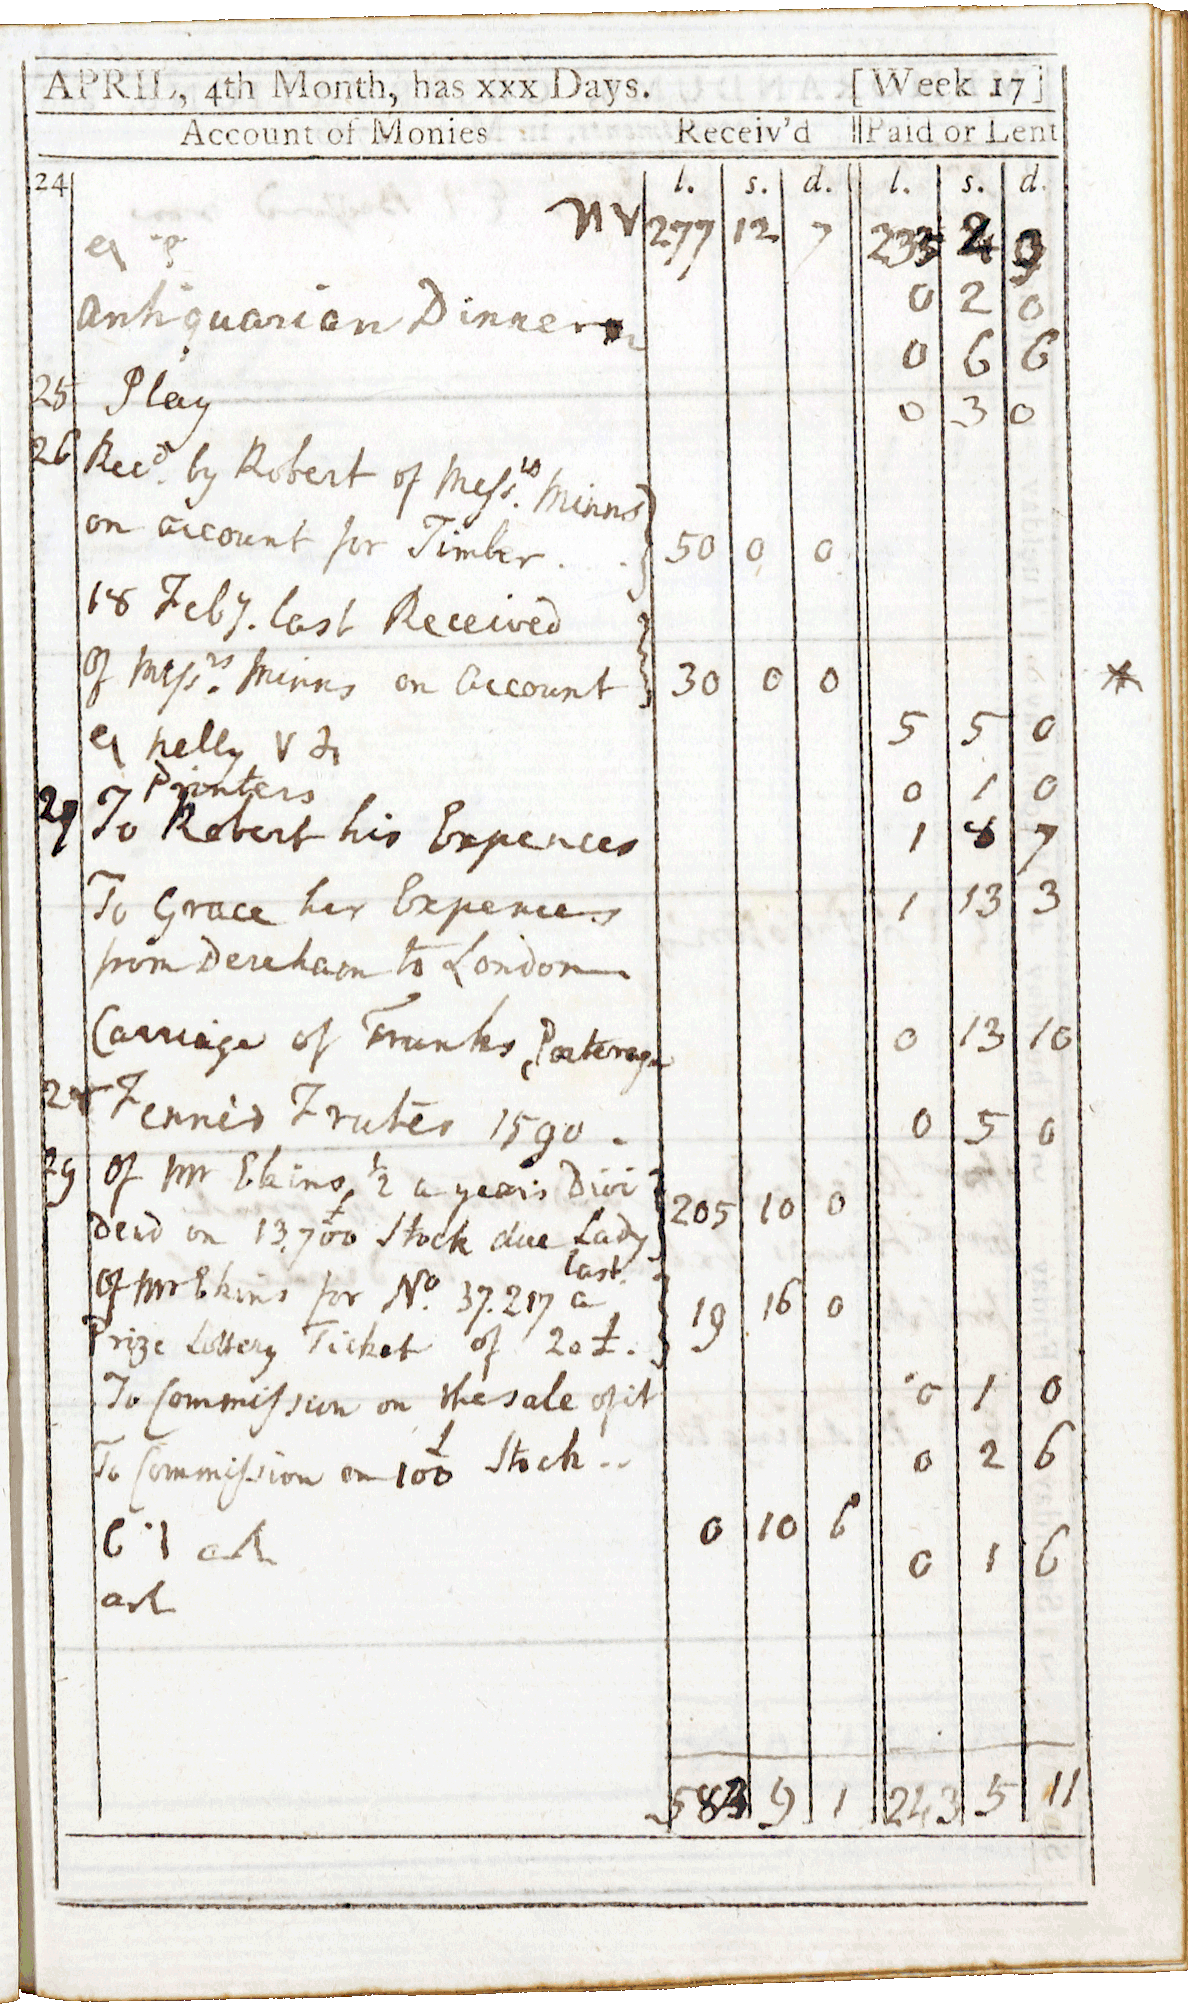 APRIL, 4th Month, has xxx Days. [Week 17]
Account of Monies Receiv'd Paid or Lent
24 l. s. d. l. s. d.
277 12 7
0 2 0
Antiquarian Dinner 0 6 6
25 Play 0 3 0
26 Recd. by Robert of Messrs. Minns
on account for Timber . . 50 0 0
18 Feby. last Received
of Messrs. Minns on Account 30 0 0
nelly 5 5 0
Printers 0 1 0
27 To Robert his Expences 1 8 7
To Grace her Expences 1 13 3
from Dereham to London
Carriage of Trunks, Porterage 0 13 10
28 Fennes Frutes 1590 - 0 5 0
29 Of Mr Ekins, ½ a years Divi
Dend on 13.700£ Stock due Lady 205 10 0
last.
Of Mr Ekins for No. 37.217 a
Prize Lottery Ticket of 20£. 19 16 0
To Commission on the sale of it 0 1 0
To Commission on 100£ Stock .. 0 2 6
0 10 6
0 1 6
583 9 1 243 5 11